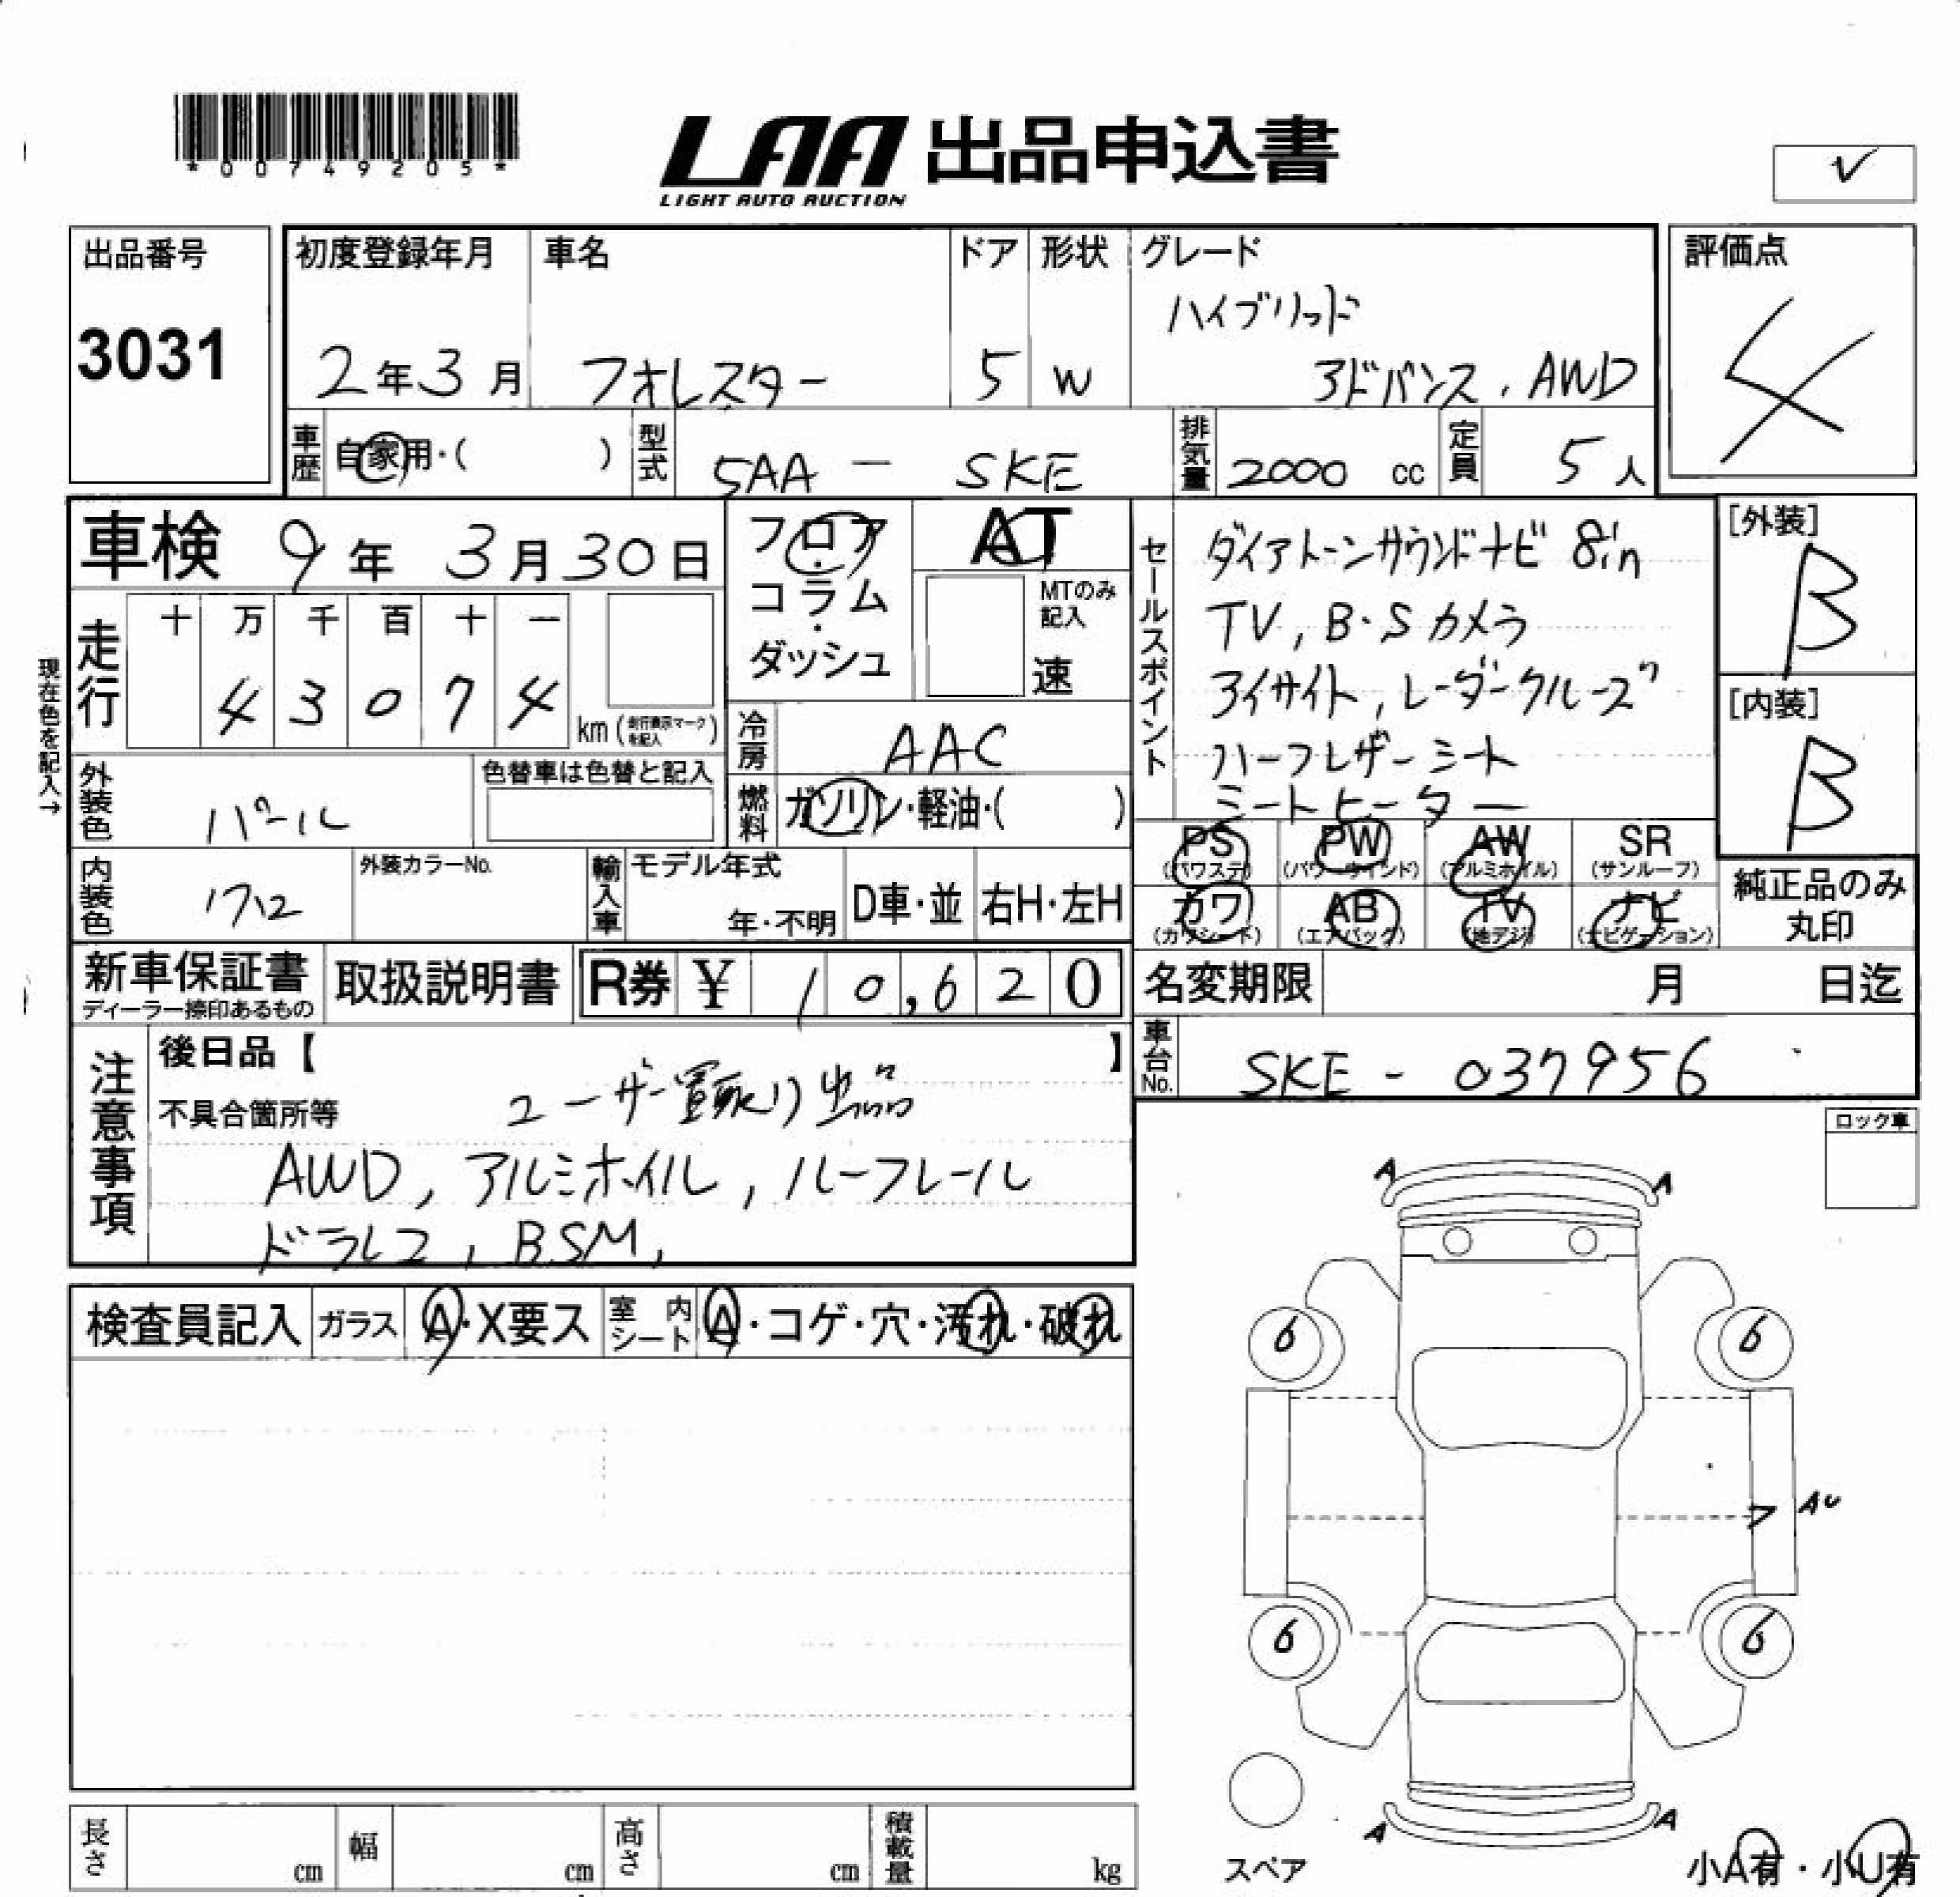 *00749205*
LAA 出品申込書
LIGHT AUTO AUCTION
✓
出品番号
3031
初度登録年月
2年3月
車名
フォレスター
ドア
5
形状
W
グレード
ハイブリッド
アドバンス, AWD
評価点
4
車歴
自家用・( )
型式
5AA - SKE
排気量
2000 cc
定員
5人
車検 9年 3月30日
フロア
コラム
ダッシュ
AT
MTのみ
記入
速
セールスポイント
ダイアトーンサウンドナビ 8in
TV, B・Sカメラ
アイサイト, レーダークルーズ
ハーフレザーシート
シートヒーター
[外装]
B
[内装]
B
現在色を記入→
走行
十 万 千 百 十 一
4 3 0 7 4
km (走行表示マークを記入)
冷房
AAC
燃料
ガソリン・軽油・( )
外装色
パール
色替車は色替と記入
内装色
外装カラーNo.
輸入車
モデル年式
年・不明
D車・並
右H・左H
PS
(パワステ)
PW
(パワーウインド)
AW
(アルミホイル)
SR
(サンルーフ)
カワ
(カワシート)
AB
(エアバッグ)
TV
(地デジ)
ナビ
(ナビゲーション)
純正品のみ
丸印
新車保証書
ディーラー捺印あるもの
取扱説明書
R券 ¥ 10,620
名変期限 月 日迄
車台No.
SKE - 037956
注意事項
後日品【 】
不具合箇所等
ユーザー買取り出品
AWD, アルミホイル, ルーフレール
ドラレコ, BSM,
ロック車
検査員記入
ガラス
A・X要ス
室内シート
A・コゲ・穴・汚れ・破れ
A A
6 6
AU
6 6
A A
スペア
小A有・小U有
長さ cm
幅 cm
高さ cm
積載量 kg